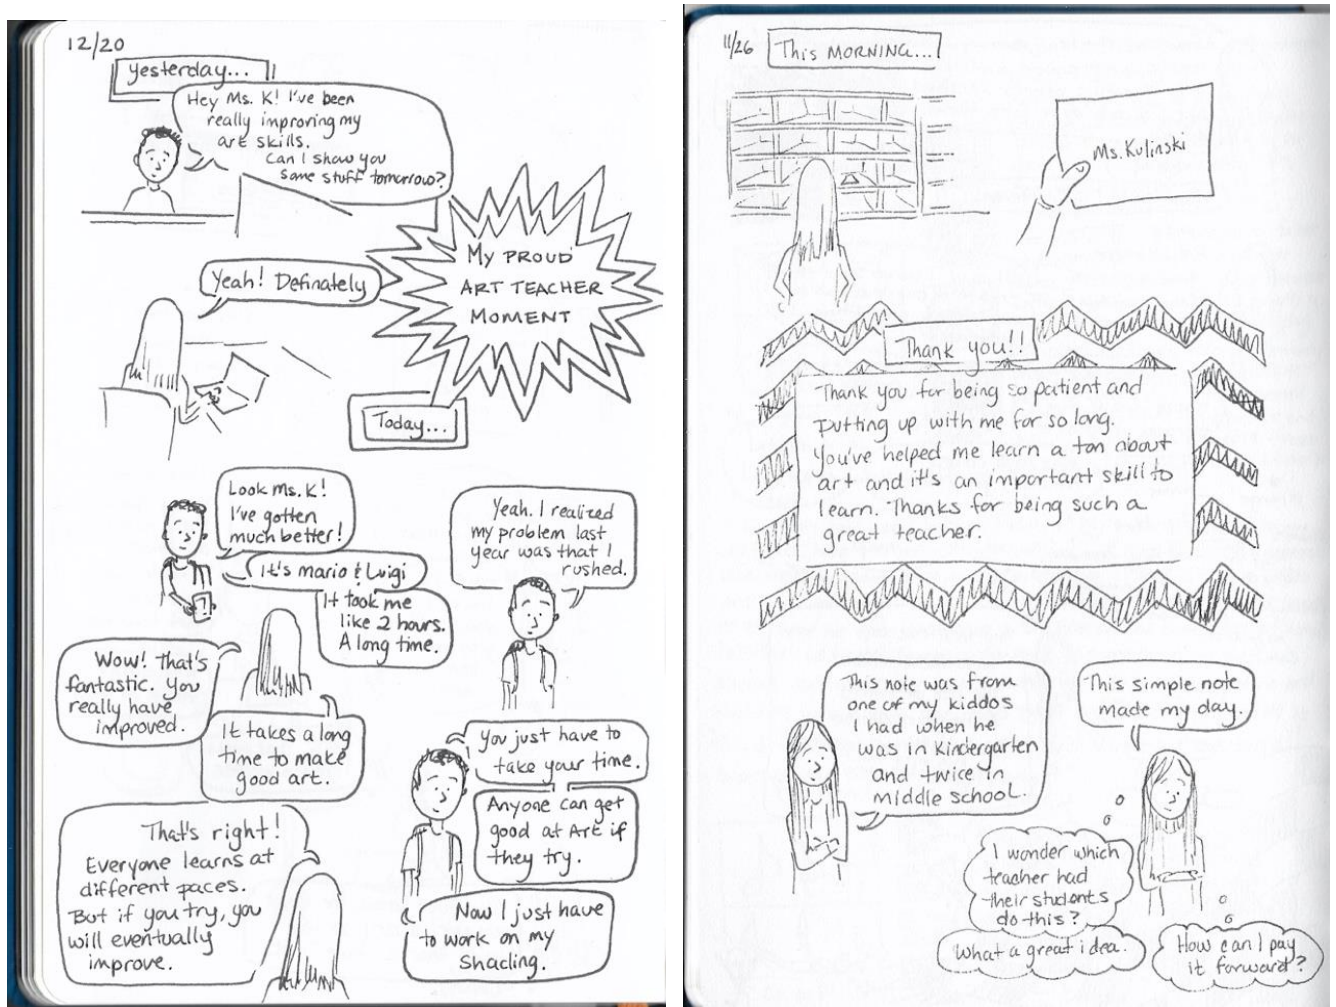 12/20
Yesterday...
Hey Ms. K! I've been
really improring my
art skills.
Can I show you
some stuff tomorrow?
My PROUD
ART TEACHER
MOMENT
Yeah! Definately
Today...
Look Ms. K!
I've gotten
much better!
It's mario & Luigi
It took me
like 2 hours.
A long time.
Wow! That's
fantastic. You
really have
improved.
It takes a long
time to make
good art.
Yeah. I realized
my problem last
year was that I
rushed.
You just have to
take your time.
Anyone can get
good at Art if
they try.
That's right!
Everyone learns at
different paces.
But if you try, you
will eventually
improve.
Now I just have
to work on my
shading.
11/26
This MORNING...
Ms. Kulinski
Thank you!!
Thank you for being so patient and
putting up with me for so long.
You've helped me learn a ton about
art and it's an important skill to
learn. Thanks for being such a
great teacher.
This note was from
one of my kiddos
I had when he
was in Kindergarten
and twice in
middle school.
This simple note
made my day.
I wonder which
teacher had
their students
do this?
What a great idea.
How can I pay
it forward?